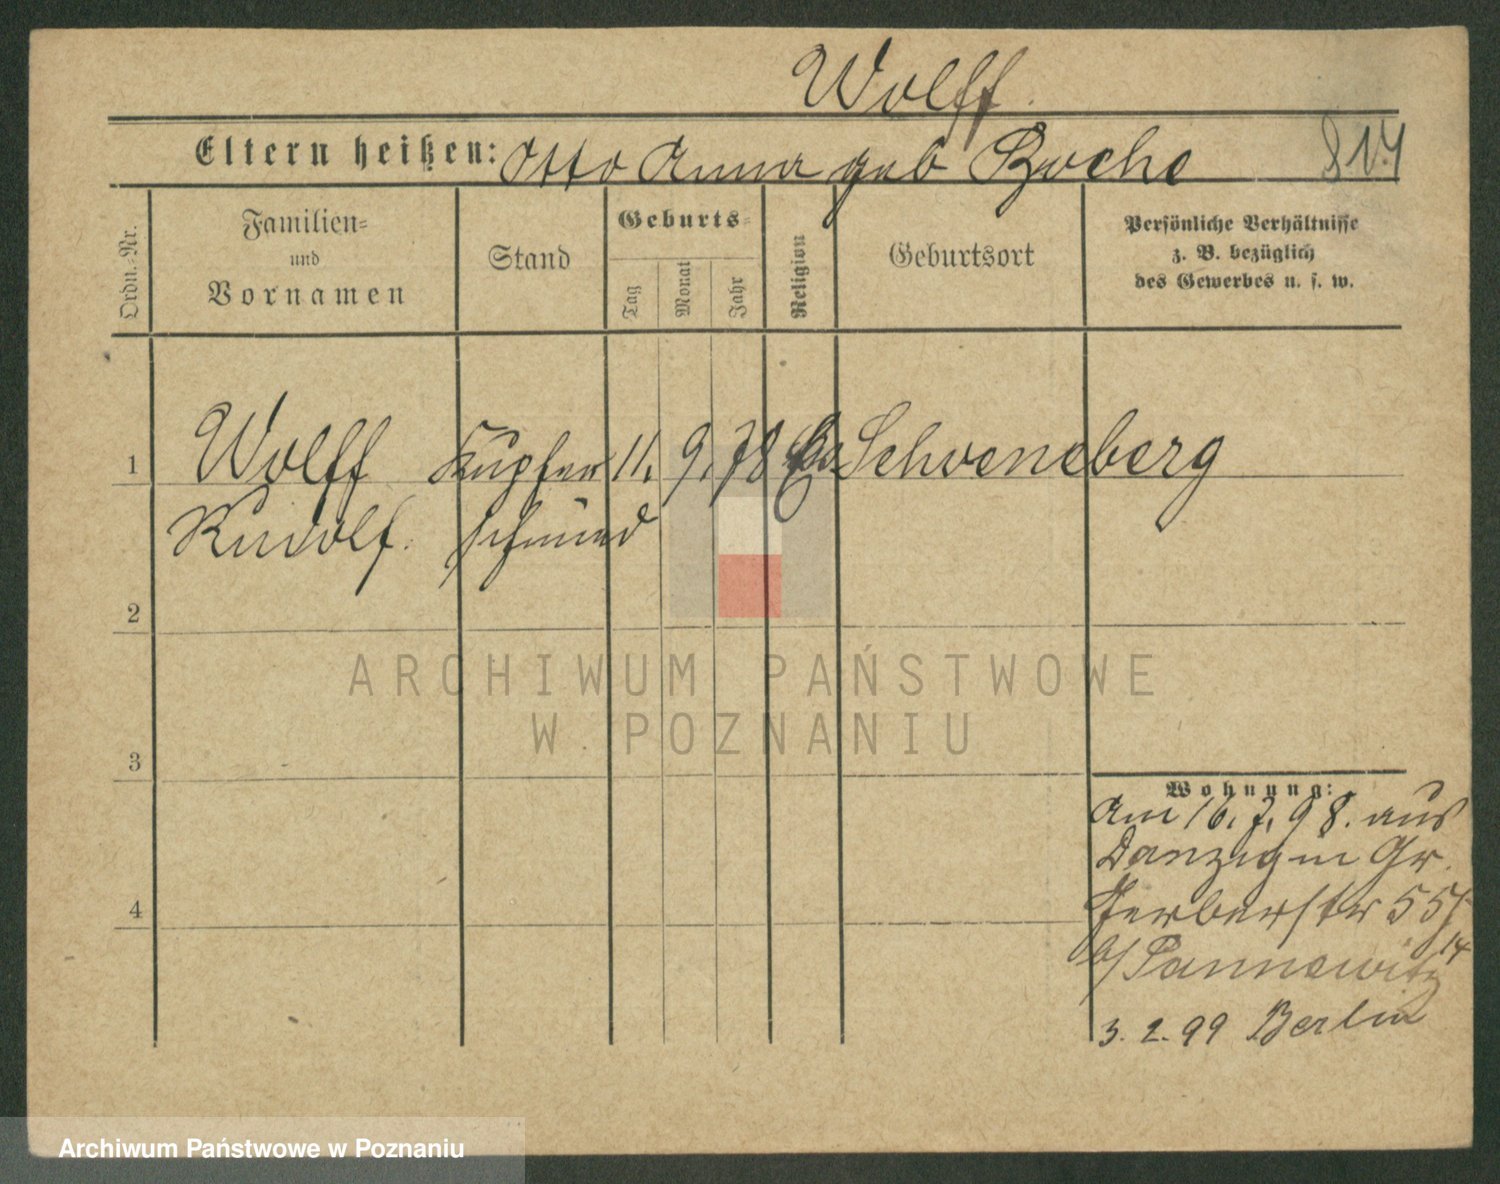 Wolff.
Eltern heißen: Otto Anna geb Boche 8174
Ordn.-Nr.
Familien- und Vornamen
Stand
Geburts-
Tag Monat Jahr
Religion
Geburtsort
Persönliche Verhältnisse
z. B. bezüglich
des Gewerbes u. s. w.
1 Wolff Kupfer 11. 9. 78 Schoeneberg
Rudolf. schmied
2
ARCHIWUM PAŃSTWOWE
W POZNANIU
3
Wohnung:
Am 16. 7. 98. aus
Danzig in Gr.
Gerberstr 55
b/ Pannewitz 14
4
3. 2. 99 Berlin
Archiwum Państwowe w Poznaniu